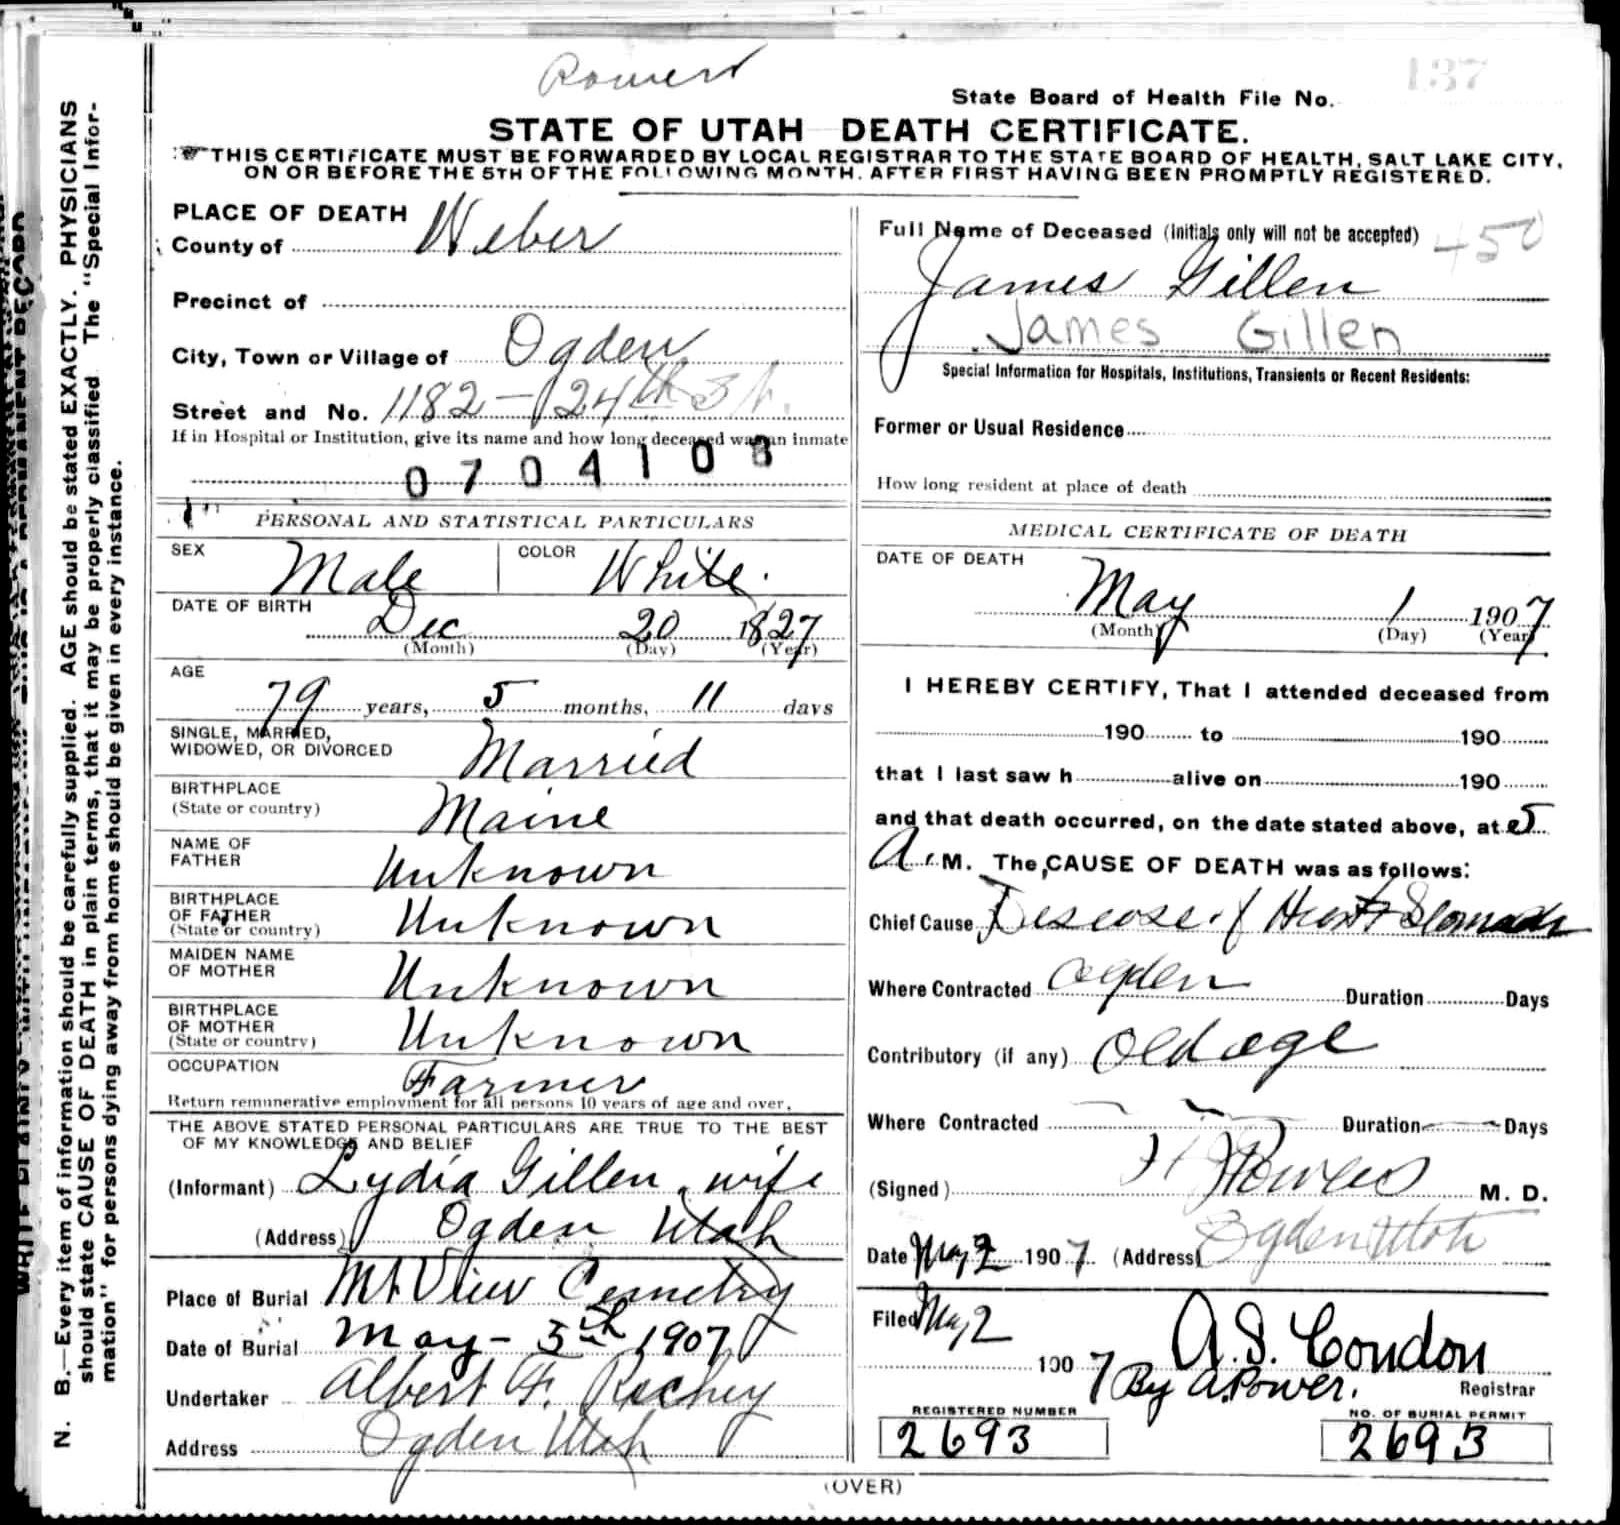 Powers
137
State Board of Health File No.
STATE OF UTAH DEATH CERTIFICATE.
THIS CERTIFICATE MUST BE FORWARDED BY LOCAL REGISTRAR TO THE STATE BOARD OF HEALTH, SALT LAKE CITY,
ON OR BEFORE THE 5TH OF THE FOLLOWING MONTH, AFTER FIRST HAVING BEEN PROMPTLY REGISTERED.
N. B.—Every item of information should be carefully supplied. AGE should be stated EXACTLY. PHYSICIANS
should state CAUSE OF DEATH in plain terms, that it may be properly classified. The "Special Infor-
mation" for persons dying away from home should be given in every instance.
PLACE OF DEATH
County of Weber
Precinct of
City, Town or Village of Ogden
Street and No. 1182 - 24th St.
If in Hospital or Institution, give its name and how long deceased was an inmate
0704108
PERSONAL AND STATISTICAL PARTICULARS
SEX Male COLOR White.
DATE OF BIRTH Dec 20 1827
(Month) (Day) (Year)
AGE
79 years, 5 months, 11 days
SINGLE, MARRIED,
WIDOWED, OR DIVORCED Married
BIRTHPLACE
(State or country) Maine
NAME OF
FATHER Unknown
BIRTHPLACE
OF FATHER
(State or country) Unknown
MAIDEN NAME
OF MOTHER Unknown
BIRTHPLACE
OF MOTHER
(State or country) Unknown
OCCUPATION Farmer
Return remunerative employment for all persons 10 years of age and over.
THE ABOVE STATED PERSONAL PARTICULARS ARE TRUE TO THE BEST
OF MY KNOWLEDGE AND BELIEF
(Informant) Lydia Gillen, wife
(Address) Ogden Utah
Place of Burial Mt View Cemetry
Date of Burial May - 3th 1907
Undertaker Albert F.
Address Ogden Utah
Full Name of Deceased (Initials only will not be accepted) 450
James Gillen
James Gillen
Special Information for Hospitals, Institutions, Transients or Recent Residents:
Former or Usual Residence
How long resident at place of death
MEDICAL CERTIFICATE OF DEATH
DATE OF DEATH
May 1 1907
(Month) (Day) (Year)
I HEREBY CERTIFY, That I attended deceased from
190 to 190
that I last saw h alive on 190
and that death occurred, on the date stated above, at 5
A. M. The CAUSE OF DEATH was as follows:
Chief Cause Disease of Heart & Stomach
Where Contracted Ogden Duration Days
Contributory (if any) Old age
Where Contracted Duration Days
(Signed) Powers M. D.
Date May 2 1907 (Address) Ogden Utah
Filed May 2
1907 A. S. Condon
By A. Power. Registrar
REGISTERED NUMBER
2693
NO. OF BURIAL PERMIT
2693
(OVER)